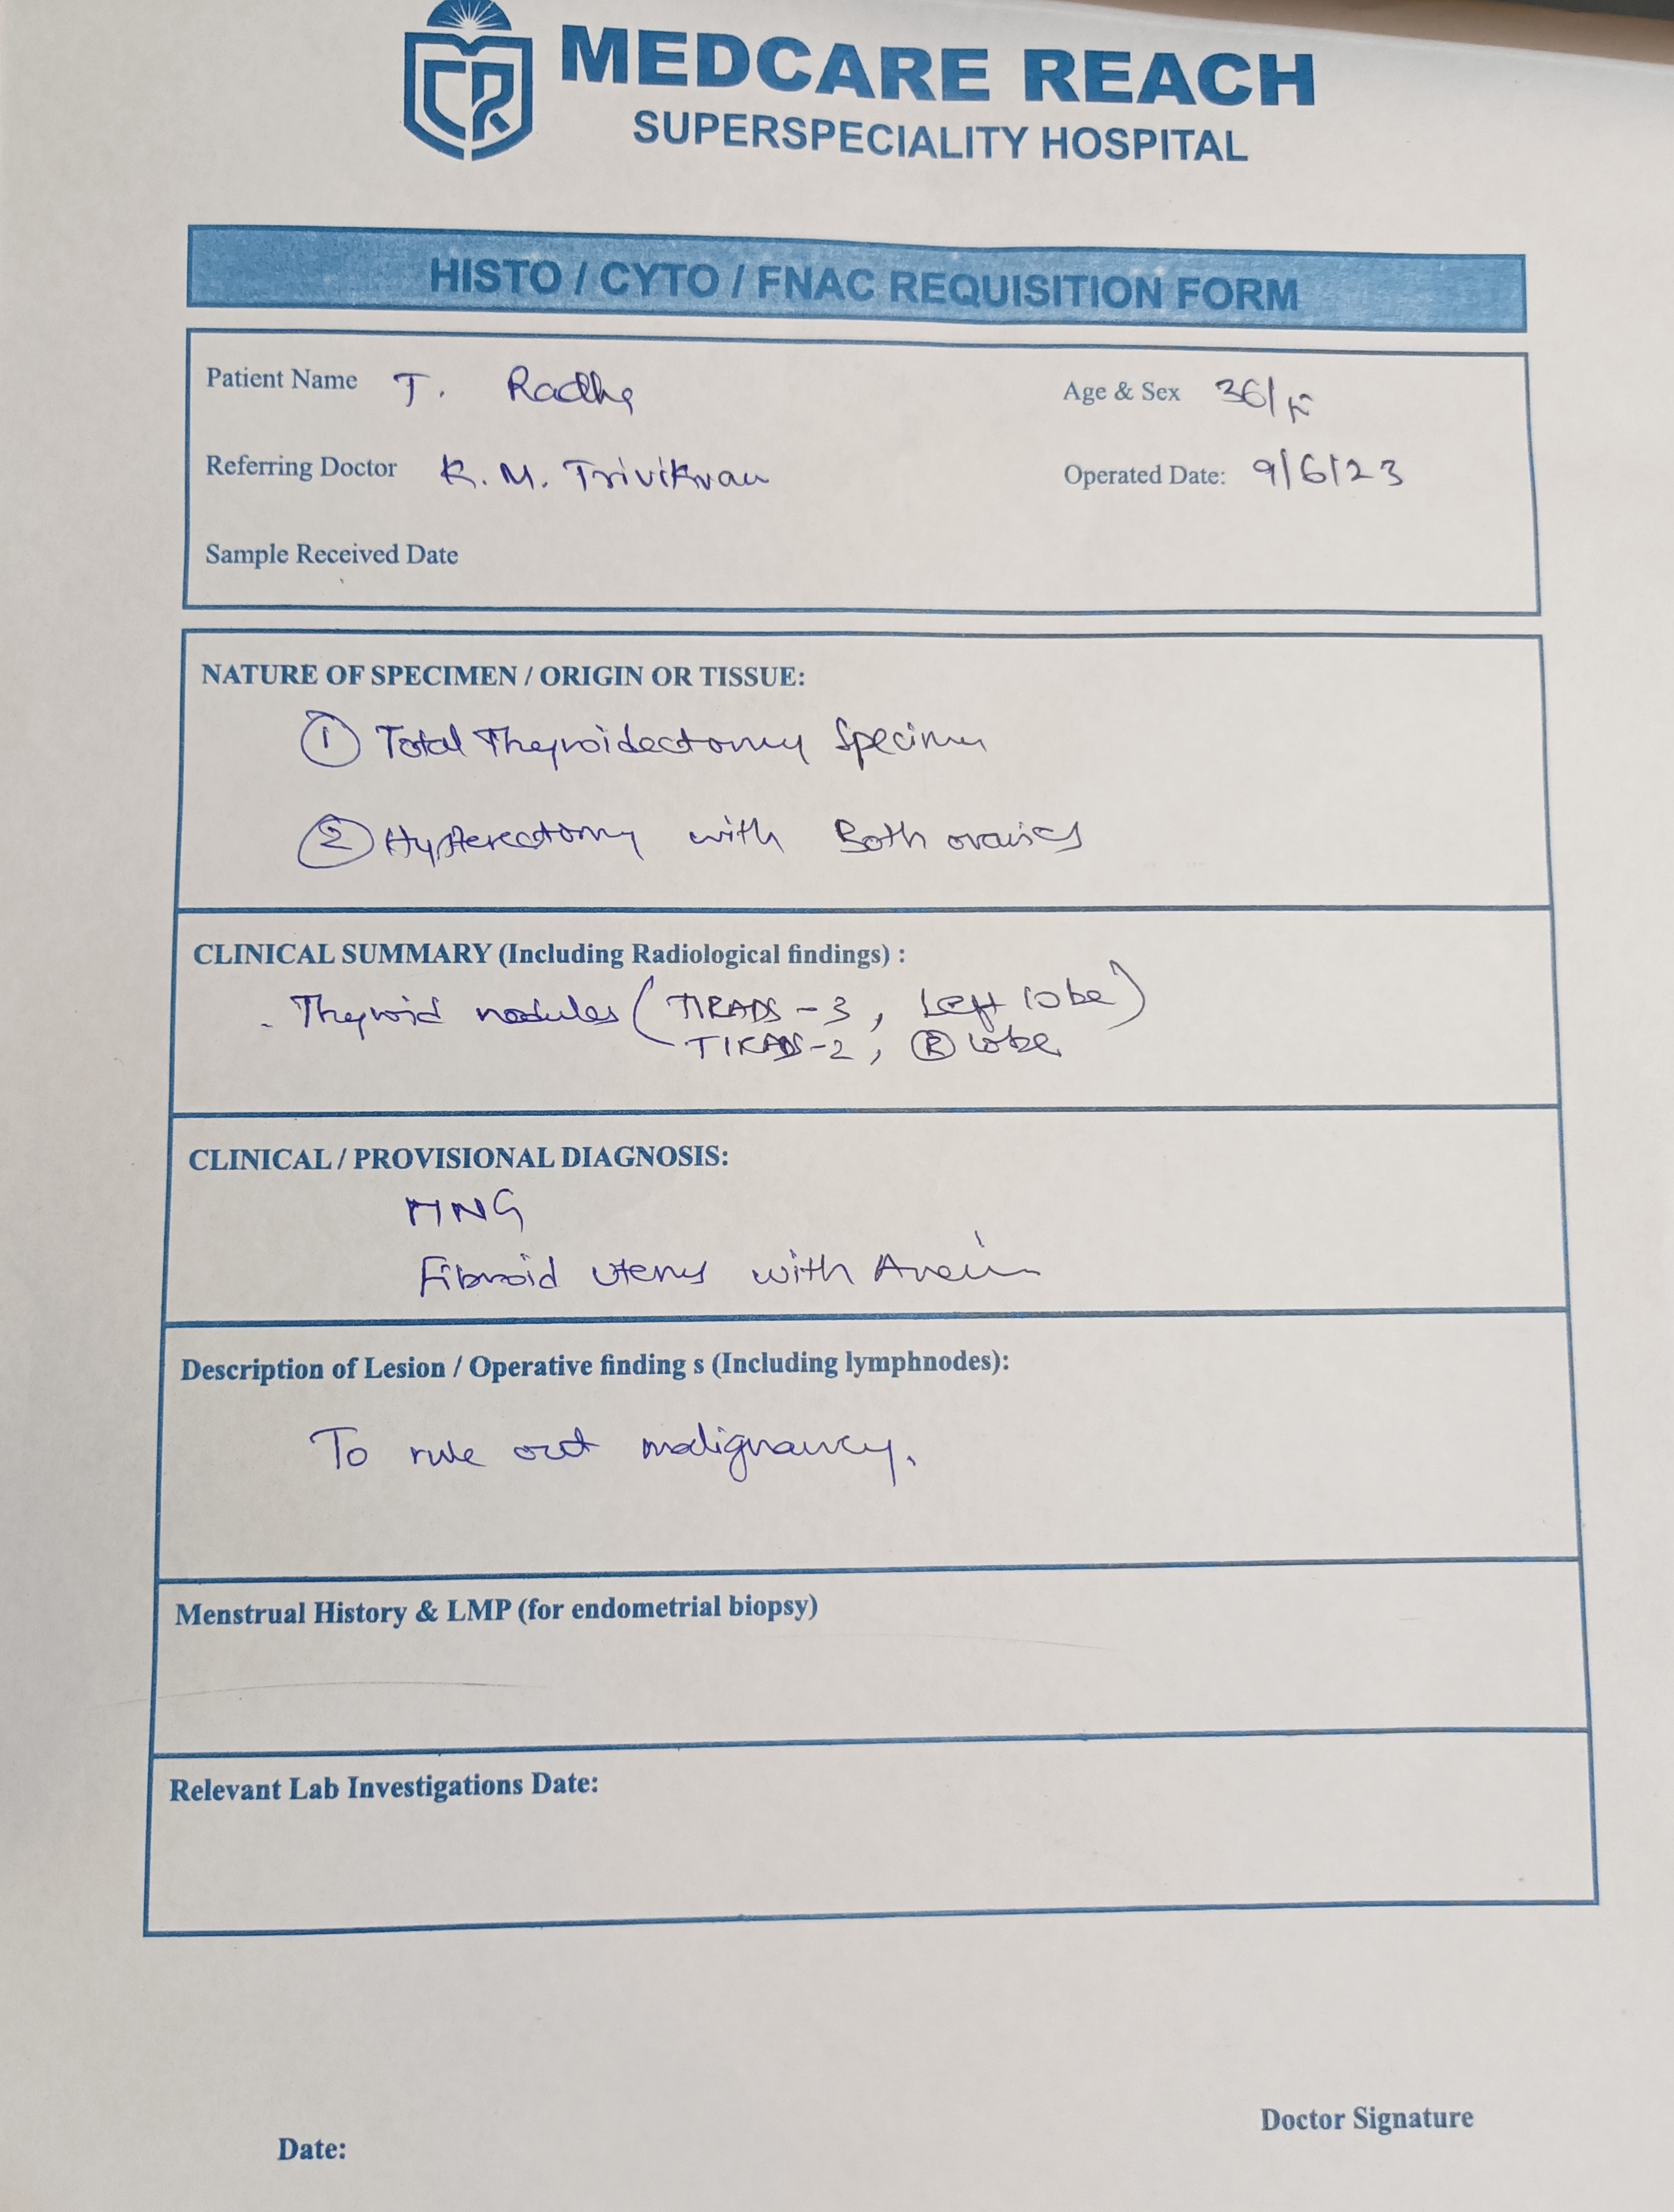 MEDCARE REACH
SUPERSPECIALITY HOSPITAL
HISTO / CYTO / FNAC REQUISITION FORM
Patient Name T. Radha Age & Sex 36/F
Referring Doctor K. M. Trivikram Operated Date: 9/6/23
Sample Received Date
NATURE OF SPECIMEN / ORIGIN OR TISSUE:
① Total Thyroidectomy Specimen
② Hysterectomy with Both ovaries
CLINICAL SUMMARY (Including Radiological findings) :
- Thyroid nodules (TIRADS-3, Left lobe)
TIRADS-2, Ⓡ lobe
CLINICAL / PROVISIONAL DIAGNOSIS:
MNG
Fibroid uterus with
Description of Lesion / Operative finding s (Including lymphnodes):
To rule out malignancy.
Menstrual History & LMP (for endometrial biopsy)
Relevant Lab Investigations Date:
Doctor Signature
Date: